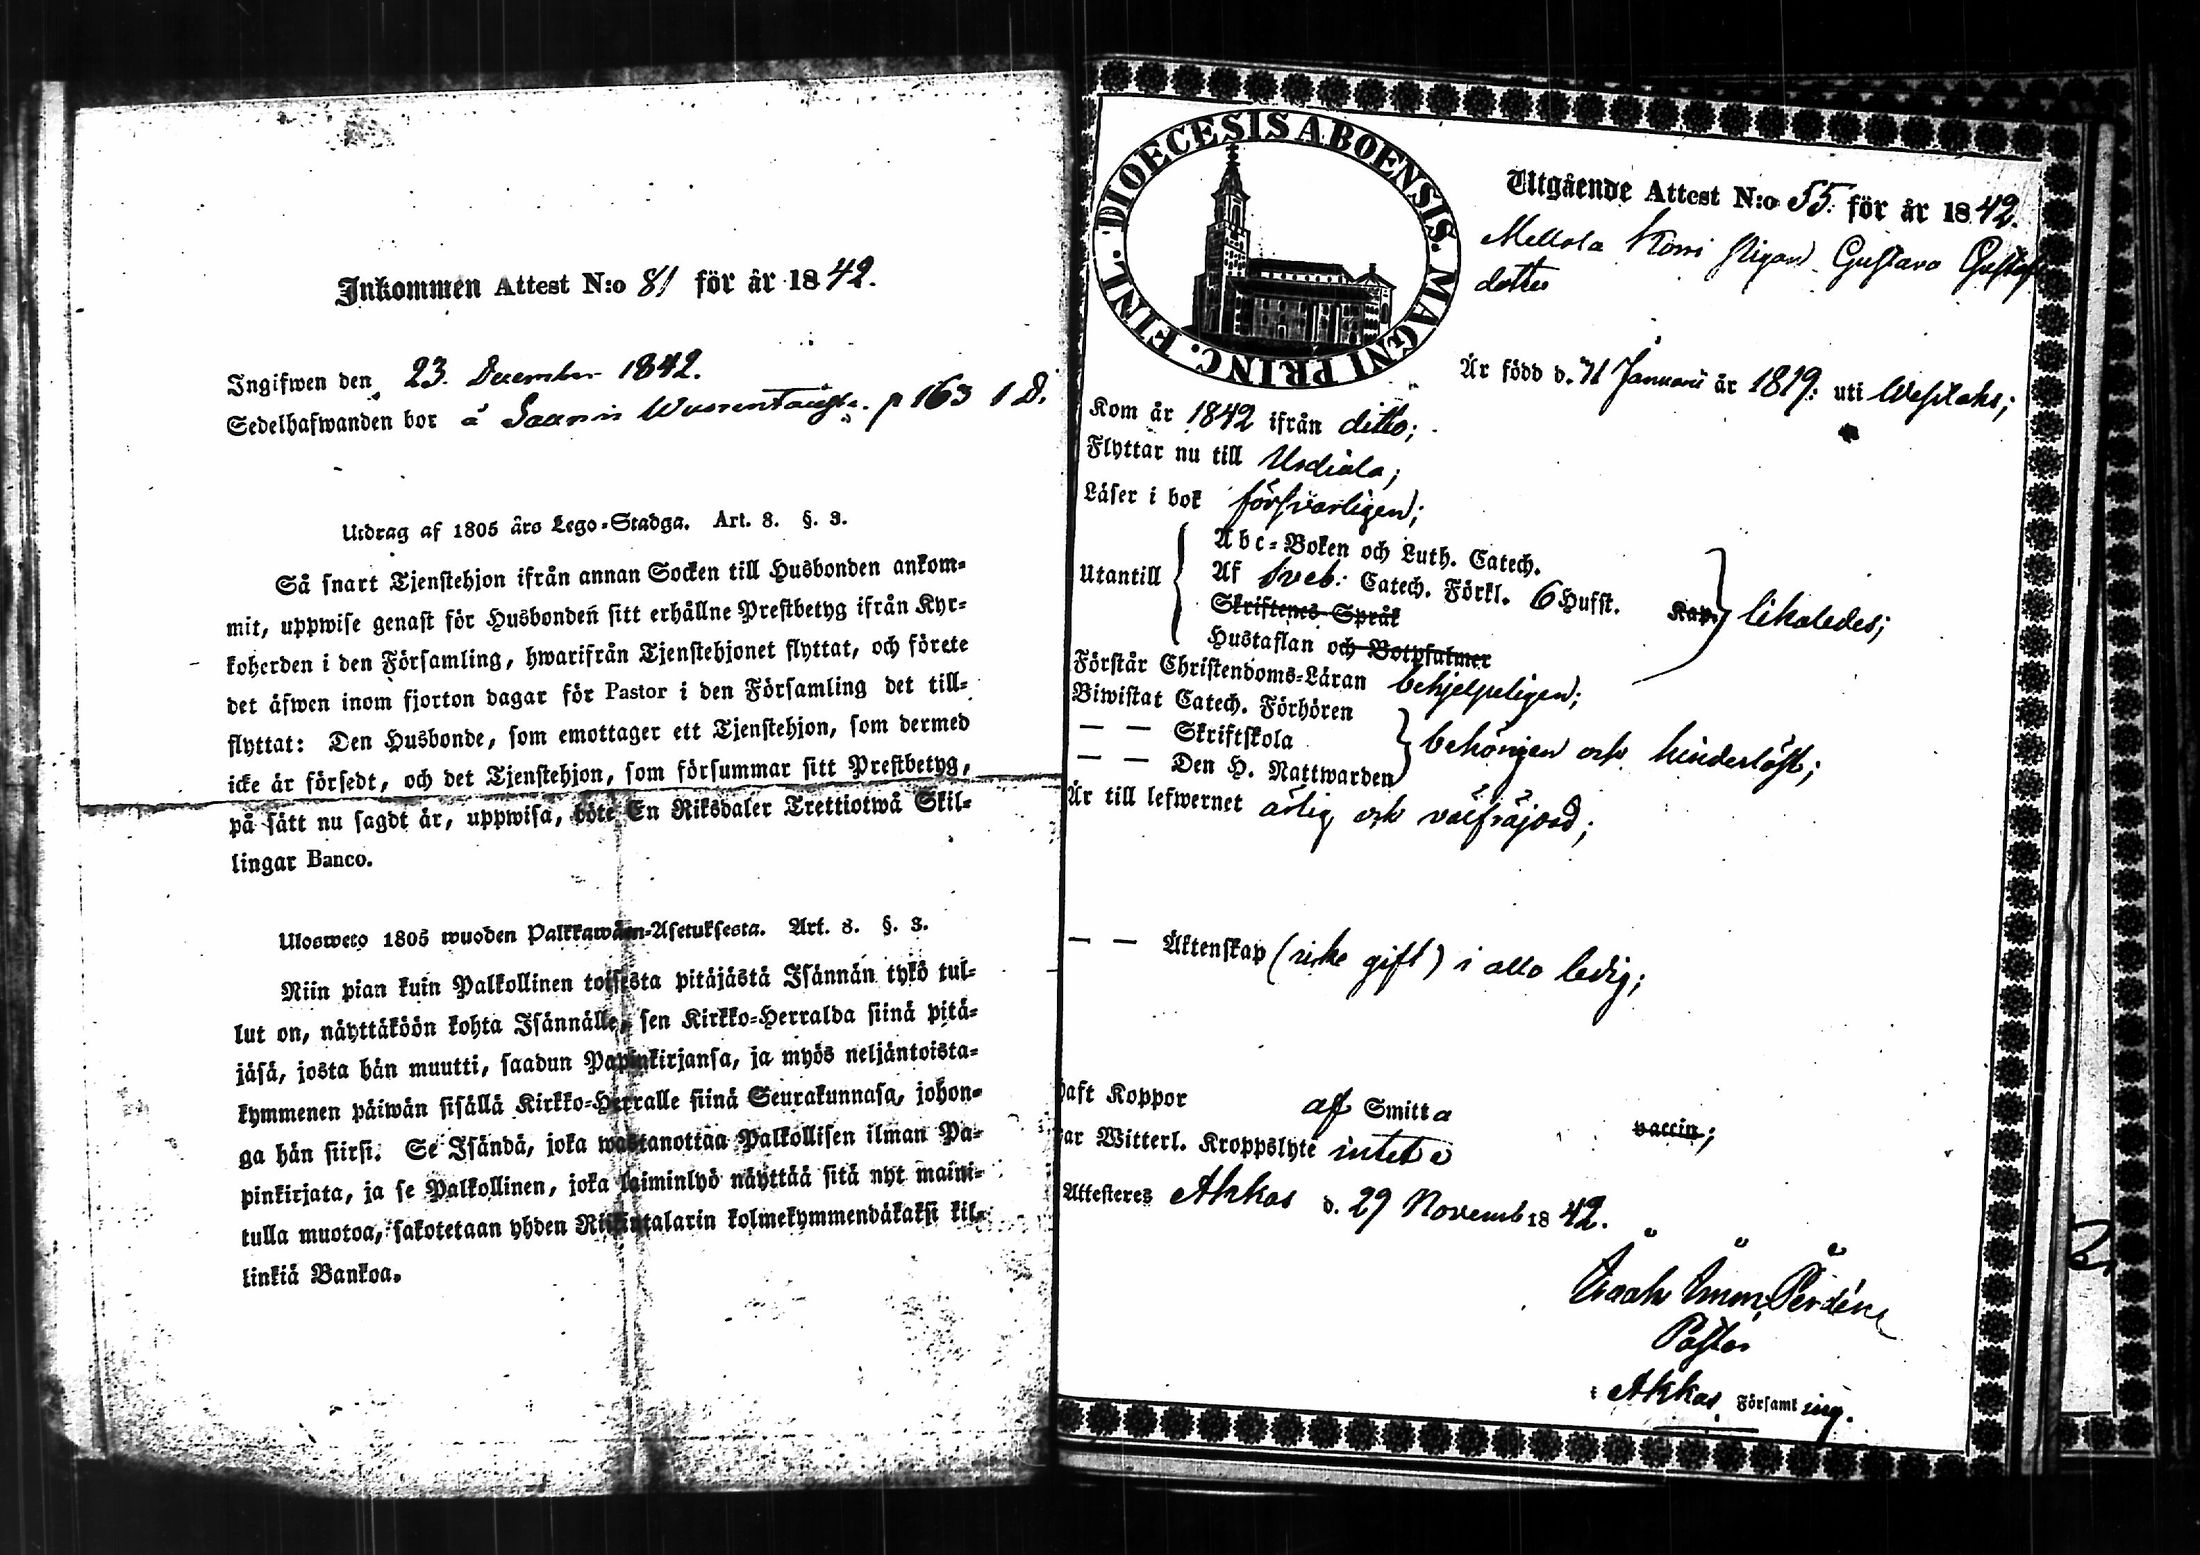 Inkommen Attest N:o 81 för år 1842.
Ingifwen den 23. December 1842.
Sedelhafwanden bor å Saaris p 163 1 D.
Utdrag af 1805 års Lego-Stadga. Art. 8. §. 3.
Så snart Tjenstehjon ifrån annan Socken till Husbonden ankom-
mit, uppwise genast för Husbonden sitt erhållne Prestbetyg ifrån Kyr-
koherden i den Församling, hwarifrån Tjenstehjonet flyttat, och förete
det äfwen inom fjorton dagar för Pastor i den Församling det till-
flyttat: Den Husbonde, som emottager ett Tjenstehjon, som dermed
icke är försedt, och det Tjenstehjon, som försummar sitt Prestbetyg,
på sätt nu sagdt är, uppwisa, böte En Riksdaler Trettiotwå Skil-
lingar Banco.
Ulosweto 1805 wuoden Palkkawäen-Asetuksesta. Art. 8. §. 3.
Niin pian kuin Palkollinen toisesta pitäjästä Isännän tykö tul-
lut on, näyttäköön kohta Isännälle, sen Kirkko-Herralda siinä pitä-
jäsä, josta hän muutti, saadun Papinkirjansa, ja myös neljäntoista-
kymmenen päiwän sisällä Kirkko-Herralle siinä Seurakunnasa, johon-
ga hän siirsi. Se Isändä, joka wastanottaa Palkollisen ilman Pa-
pinkirjata, ja se Palkollinen, joka laiminlyö näyttää sitä nyt maini-
tulla muotoa, sakotetaan yhden Riikintalarin kolmekymmendäkaksi kil-
linkiä Bankoa.
DIOECESIS ABOENSIS. MAGNI PRINC. FINL.
Utgående Attest N:o 55. för år 1842.
Mellola Korri Pigan Gustava Gustafs
dotter
Är född d. 11 Januarii år 1819: uti Wesilaks;
Kom år 1842 ifrån ditto;
Flyttar nu till Urdiala;
Läser i bok försvarligen;
Utantill
Abc-Boken och Luth. Catech.
Af Sveb: Catech. Förkl. 6 Hufst. Kap. likaledes;
Skriftenes Språk
Hustaflan och Botpsalmer
Förstår Christendoms-Läran behjelpeligen;
Biwistat Catech. Förhören
— — Skriftskola behörigen och hinderlöst;
— — Den H. Nattwarden
Är till lefwernet ärlig och välfräjdad;
— — Äktenskap (icke gift) i allo ledig;
haft Koppor af Smitta vaccin;
har Witterl. Kroppslyte intet
Attesteres Akkas d. 29 Novemb 1842.
Isaak Imm.
Pastor
i Akkas Församling.